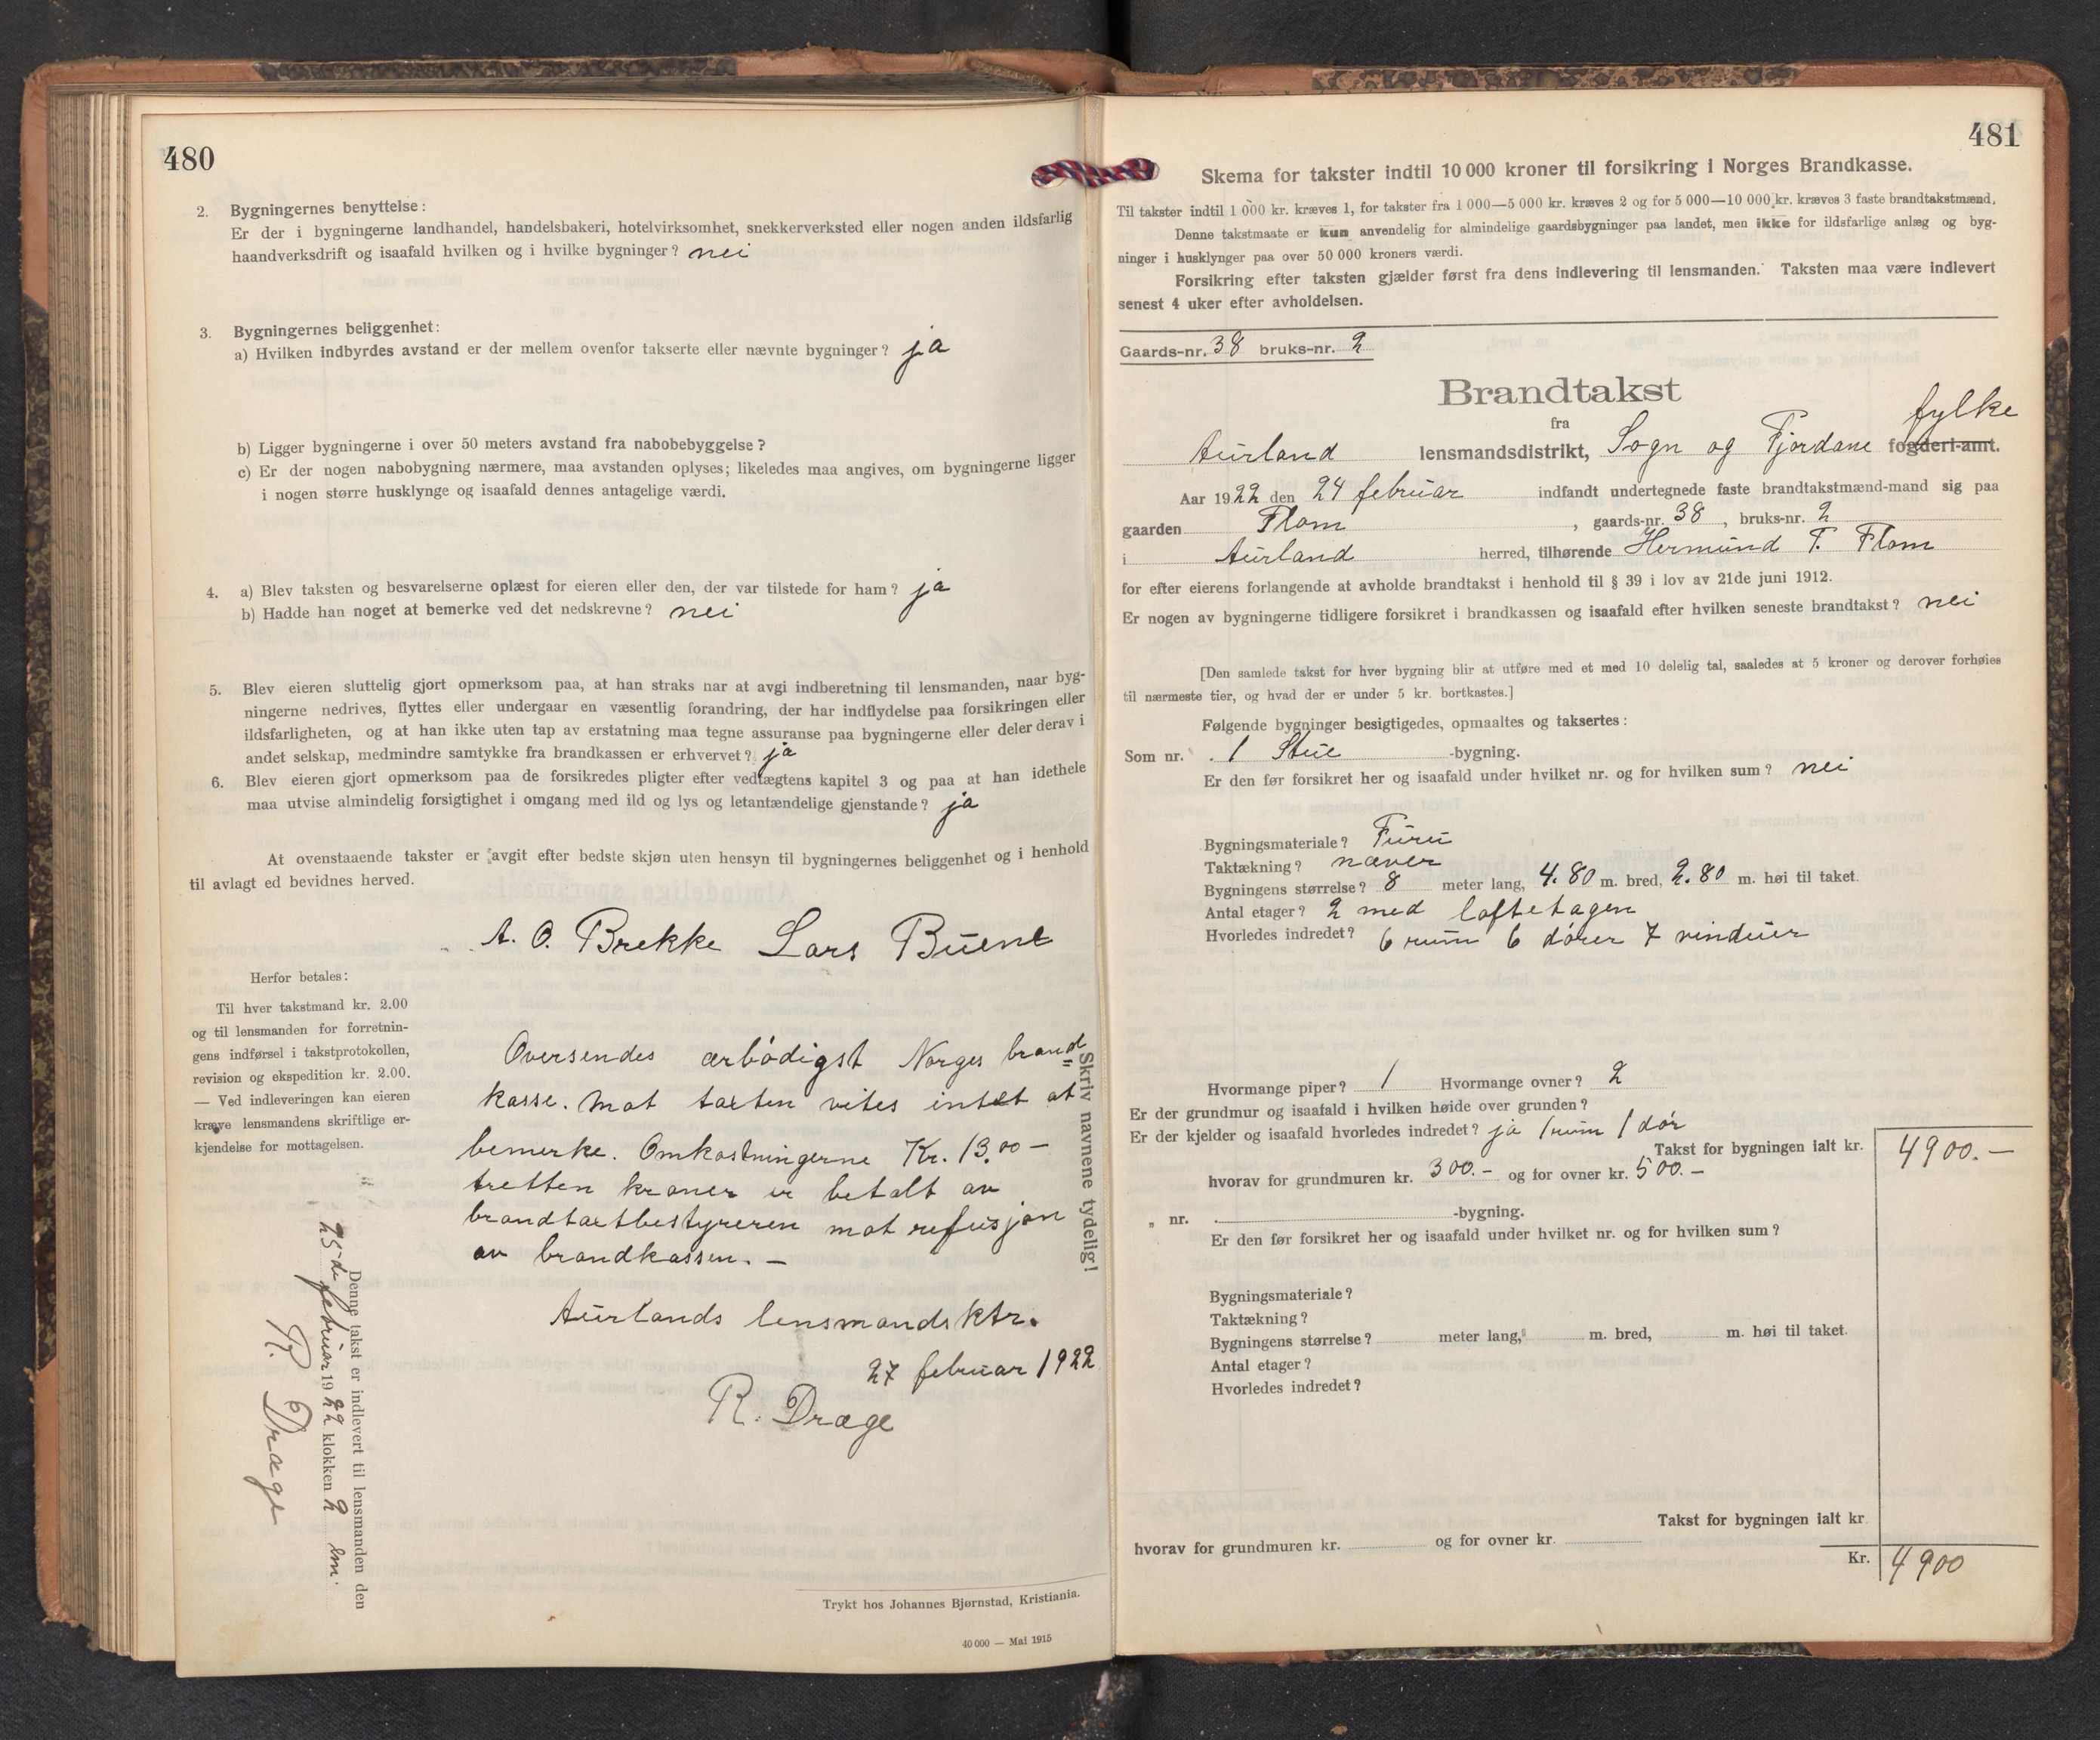 480
2. Bygningernes benyttelse:
Er der i bygningerne landhandel, handelsbakeri, hotelvirksomhet, snekkerverksted eller nogen anden ildsfarlig
haandverksdrift og isaafald hvilken og i hvilke bygninger? nei
3. Bygningernes beliggenhet:
a) Hvilken indbyrdes avstand er der mellem ovenfor takserte eller nævnte bygninger? ja
b) Ligger bygningerne i over 50 meters avstand fra nabobebyggelse?
c) Er der nogen nabobygning nærmere, maa avstanden oplyses; likeledes maa angives, om bygningerne ligger
i nogen større husklynge og isaafald dennes antagelige værdi.
4. a) Blev taksten og besvarelserne oplæst for eieren eller den, der var tilstede for ham? ja
b) Hadde han noget at bemerke ved det nedskrevne? nei
5. Blev eieren sluttelig gjort opmerksom paa, at han straks har at avgi indberetning til lensmanden, naar byg-
ningerne nedrives, flyttes eller undergaar en væsentlig forandring, der har indflydelse paa forsikringen eller
ildsfarligheten, og at han ikke uten tap av erstatning maa tegne assuranse paa bygningerne eller deler derav i
andet selskap, medmindre samtykke fra brandkassen er erhvervet? ja
6. Blev eieren gjort opmerksom paa de forsikredes pligter efter vedtægtens kapitel 3 og paa at han idethele
maa utvise almindelig forsigtighet i omgang med ild og lys og letantændelige gjenstande? ja
At ovenstaaende takster er avgit efter bedste skjøn uten hensyn til bygningernes beliggenhet og i henhold
til avlagt ed bevidnes herved.
A. O. Brekke Lars Buene
Herfor betales:
Til hver takstmand kr. 2.00
og til lensmanden for forretnin-
gens indførsel i takstprotokollen,
revision og ekspedition kr. 2.00.
— Ved indleveringen kan eieren
kræve lensmandens skriftlige er-
kjendelse for mottagelsen.
Oversendes ærbødigst Norges brand
kasse. Mot taxten vites intet at
bemerke. Omkostningerne Kr. 13.00 —
tretten kroner er betalt av
brandtaxtbestyreren mot refusjon
av brandkassen. —
Aurlands lensmandsktr.
27 februar 1922
R. Dræge
Skriv navnene tydelig!
Denne takst er indlevert til lensmanden den
25-de februar 1922 klokken 2 em.
R. Dræge
Trykt hos Johannes Bjørnstad, Kristiania.
40 000 — Mai 1915
481
Skema for takster indtil 10 000 kroner til forsikring i Norges Brandkasse.
Til takster indtil 1 000 kr. kræves 1, for takster fra 1 000—5 000 kr. kræves 2 og for 5 000—10 000 kr. kræves 3 faste brandtakstmænd.
Denne takstmaate er kun anvendelig for almindelige gaardsbygninger paa landet, men ikke for ildsfarlige anlæg og byg-
ninger i husklynger paa over 50 000 kroners værdi.
Forsikring efter taksten gjælder først fra dens indlevering til lensmanden. Taksten maa være indlevert
senest 4 uker efter avholdelsen.
Gaards-nr. 38 bruks-nr. 2
Brandtakst
fra
fylke
Aurland lensmandsdistrikt, Sogn og Fjordane fogderi-amt.
Aar 1922 den 24 februar indfandt undertegnede faste brandtakstmænd-mand sig paa
gaarden Flom, gaards-nr. 38, bruks-nr. 2
i Aurland herred, tilhørende Hermund T. Flom
for efter eierens forlangende at avholde brandtakst i henhold til § 39 i lov av 21de juni 1912.
Er nogen av bygningerne tidligere forsikret i brandkassen og isaafald efter hvilken seneste brandtakst? nei
[Den samlede takst for hver bygning blir at utføre med et med 10 delelig tal, saaledes at 5 kroner og derover forhøies
til nærmeste tier, og hvad der er under 5 kr. bortkastes.]
Følgende bygninger besigtigedes, opmaaltes og taksertes:
Som nr. 1 Stue -bygning.
Er den før forsikret her og isaafald under hvilket nr. og for hvilken sum? nei
Bygningsmateriale? Furu
Taktækning? næver
Bygningens størrelse? 8 meter lang, 4.80 m. bred, 2.80 m. høi til taket.
Antal etager? 2 med loftetagen
Hvorledes indredet? 6 rum 6 dører 7 vinduer
Hvormange piper? 1 Hvormange ovner? 2
Er der grundmur og isaafald i hvilken høide over grunden?
Er der kjelder og isaafald hvorledes indredet? ja 1 rum 1 dør
Takst for bygningen ialt kr. 4900.—
hvorav for grundmuren kr. 300.— og for ovner kr. 500.—
„ nr. -bygning.
Er den før forsikret her og isaafald under hvilket nr. og for hvilken sum?
Bygningsmateriale?
Taktækning?
Bygningens størrelse? meter lang, m. bred, m. høi til taket.
Antal etager?
Hvorledes indredet?
Takst for bygningen ialt kr
hvorav for grundmuren kr. og for ovner kr.
Kr. 4900